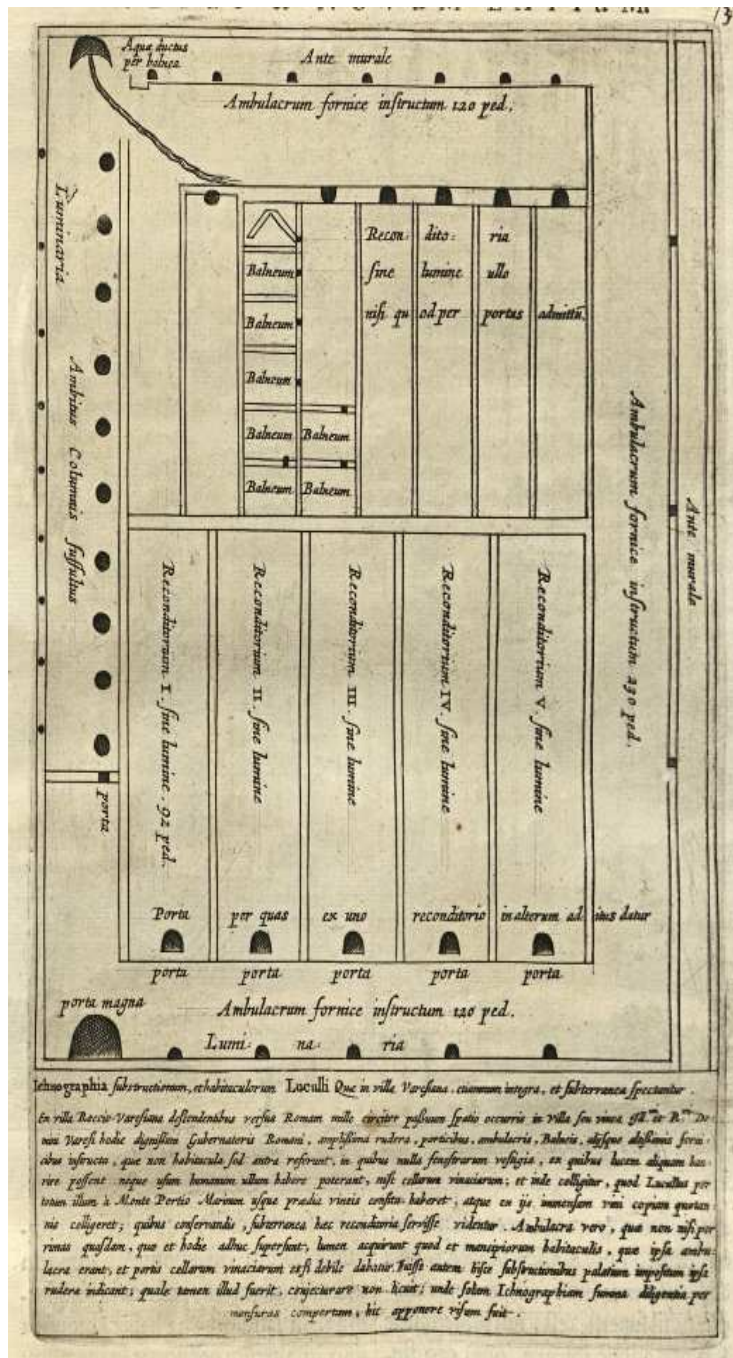 13
Aquæ ductus
per balnea
Ante murale
Ambulacrum fornice instructum 120 ped.
Luminaria
Ambitus Columnis suffultus
Recon: dito: ria
sine lumine ullo
nisi qu od per portas admittũ.
Balneum
Balneum
Balneum
Balneum Balneum
Balneum Balneum
Ambulacrum fornice instructum 230 ped.
Ante murale
Reconditorium I. sine lumine. 92 ped.
Reconditorium II. sine lumine
Reconditorium III. sine lumine
Reconditorium IV. sine lumine
Reconditorium V. sine lumine
porta
Porta per quas ex uno reconditorio in alterum ad itus datur
porta porta porta porta porta
porta magna
Ambulacrum fornice instructum 120 ped.
Lumi: na: ria
Ichnographia substructionum, et habitaculorum Luculli Quæ in villa Varesiana, etiamnum integra, et subterranea spectantur.
En villa Roccio-Varesiana descendentibus versus Romam mille circiter passuum spatio occurris in villa seu vinea Do-
mini Varesi hodie dignissimi Gubernatoris Romani, amplissima rudera, porticibus, ambulacris, Balneis, alijsque altissimis forni-
cibus instructa, quæ non habitacula sed antra referunt, in quibus nulla fenestrarum vestigia, ex quibus lucem aliquam hau-
rire possent neque usum humanum ullum habere poterant, nisi cellarum vinaciarum; et inde colligitur, quod Lucullus per
totum illum à Monte Portio Marinum usque prædia vineis consita haberet, atque ex ijs immensam vini copiam quotan-
nis colligeret; quibus conservandis, subterranea hæc reconditoria servisse videntur. Ambulacra vero, quæ non nisi per
rimas quasdam, quæ et hodie adhuc supersunt, lumen acquirunt quod et mancipiorum habitaculis, quæ ipsa ambu-
lacra erant, et portis cellarum vinaciarum etsi debile dabatur. fuisse autem hisce substructionibus palatium impositum ipsa
rudera indicant; quale tamen illud fuerit, conjecturare non licuit; unde solum Ichnographiam summa diligentia per
mensuras compertam, hic apponere visum fuit.